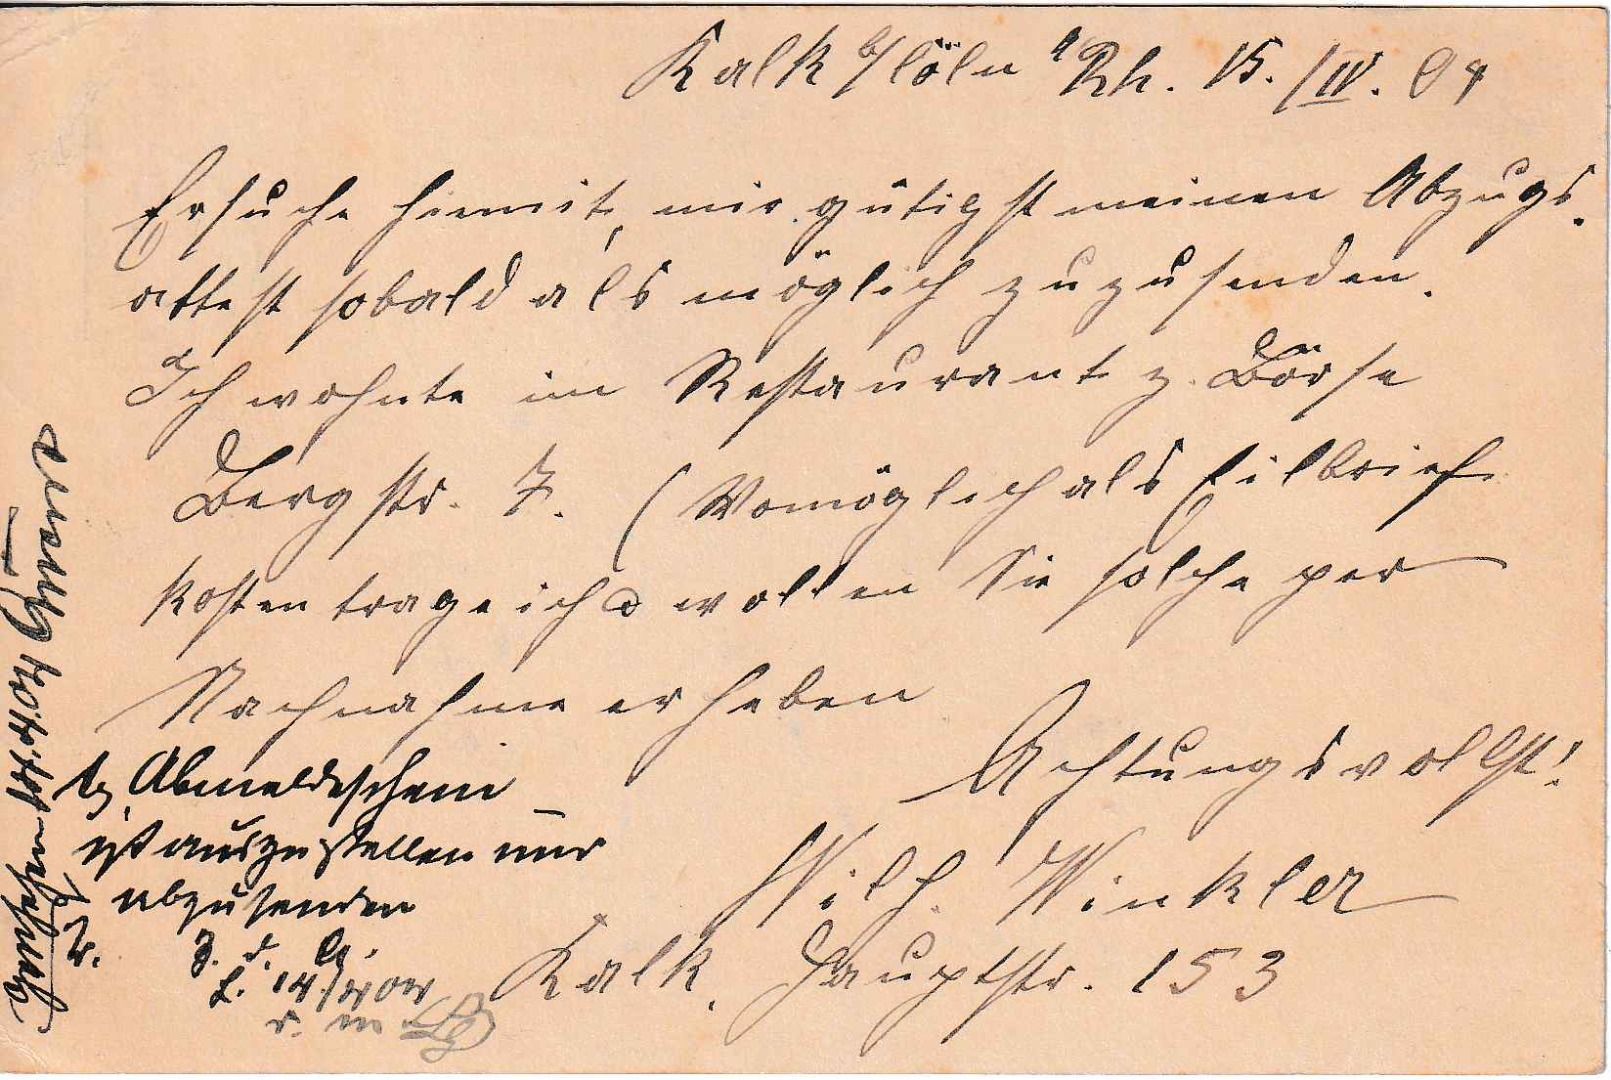 Kalk b/Cöln a/Rh. 15./IV. 04
Ersuche hiemit, mir gütigst meinen Abzugs-
attest sobald als möglich zuzusenden.
Ich wohnte im Restaurant z. Börse
Bergstr. 7. (Womöglich als Eilbrief
kosten trage ich wollen Sie solche per
Nachnahme erheben
Achtungsvollst!
Wilh. Winkler
Kalk, Hauptstr. 153
Abmeldeschein
ist auszustellen und
abzusenden